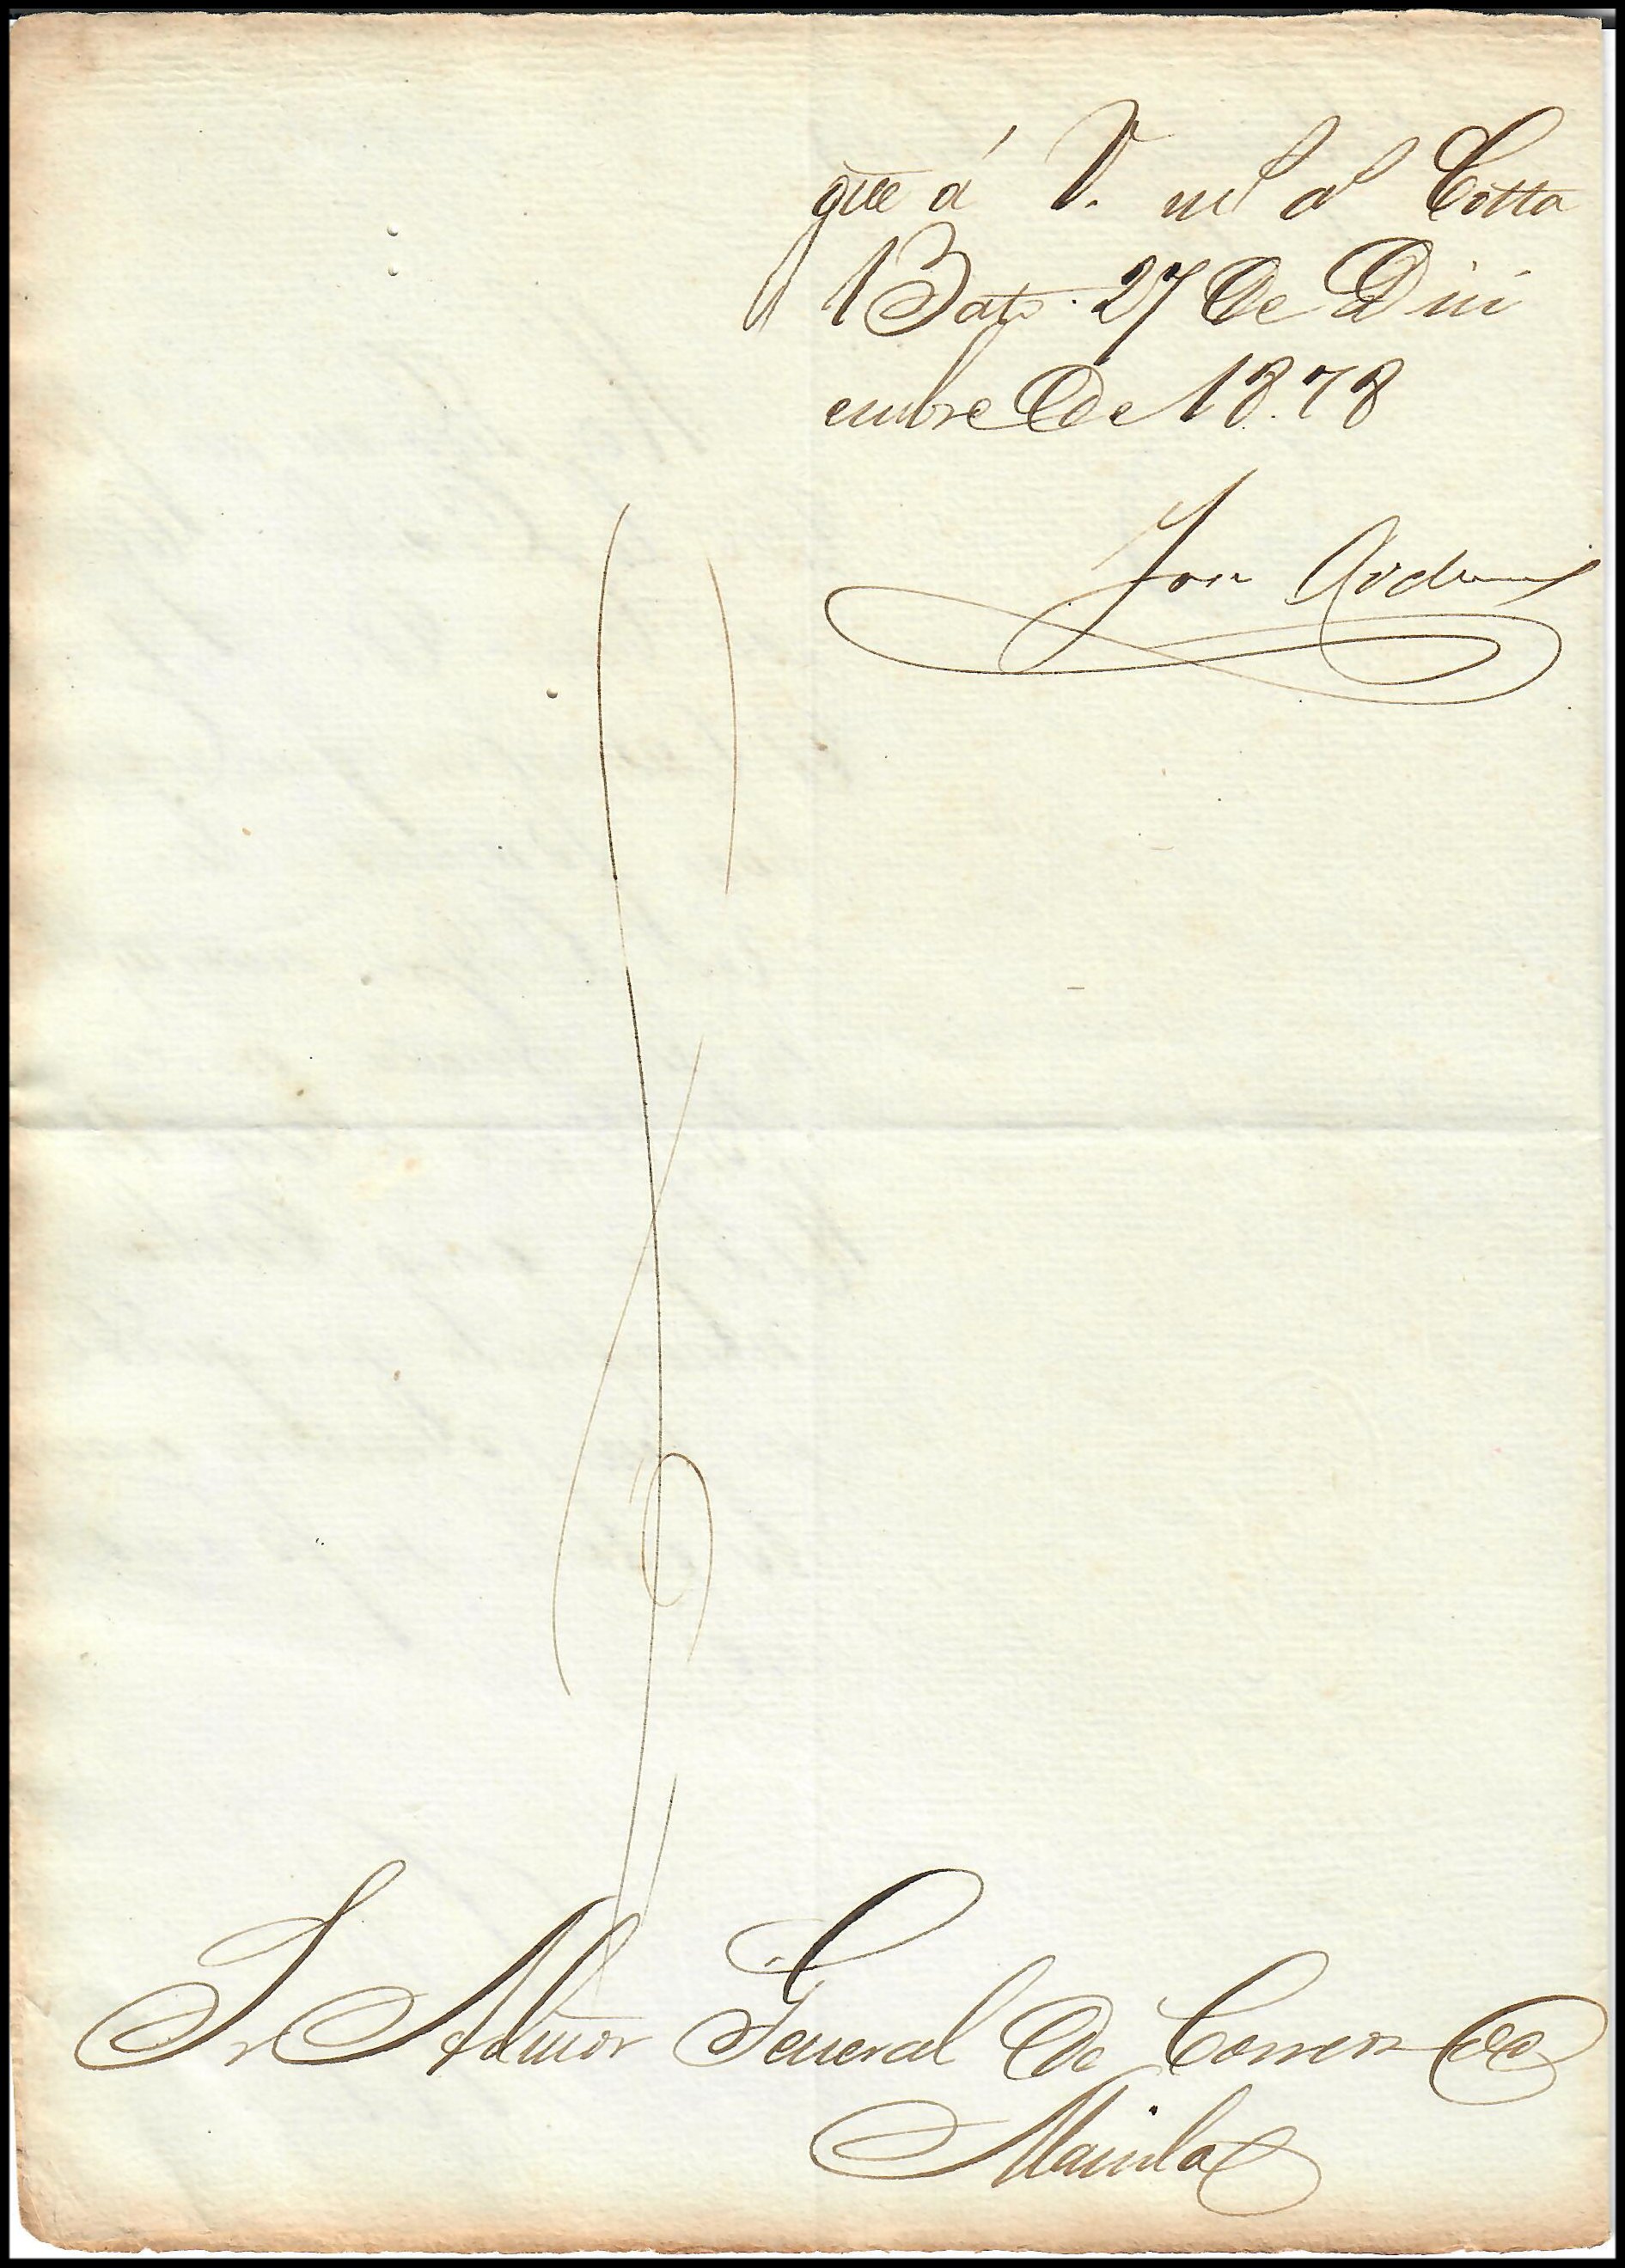 gue á V. ms as Cotta
Bato 27 de Dici
embre de 1878
Jose
Sr Admor General de Correos de
Manila